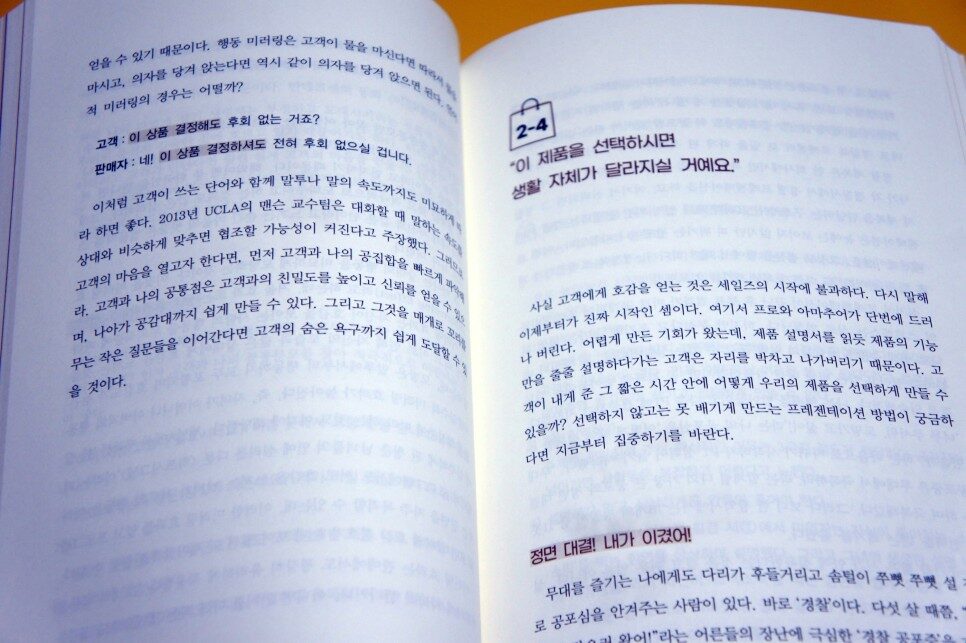 얻을 수 있기 때문이다. 행동 미러링은 고객이 물을 마신다면 따라서 물을
마시고, 의자를 당겨 앉는다면 역시 같이 의자를 당겨 앉으면 된다.
적 미러링의 경우는 어떨까?
고객 : 이 상품 결정해도 후회 없는 거죠?
판매자 : 네! 이 상품 결정하셔도 전혀 후회 없으실 겁니다.
이처럼 고객이 쓰는 단어와 함께 말투나 말의 속도까지도 미묘하게 따
라 하면 좋다. 2013년 UCLA의 맨슨 교수팀은 대화할 때 말하는 속도를
상대와 비슷하게 맞추면 협조할 가능성이 커진다고 주장했다. 그러므로
고객의 마음을 열고자 한다면, 먼저 고객과 나의 공집합을 빠르게 파악해
라. 고객과 나의 공통점은 고객과의 친밀도를 높이고 신뢰를 얻을 수 있으
며, 나아가 공감대까지 쉽게 만들 수 있다. 그리고 그것을 매개로 꼬리를
무는 작은 질문들을 이어간다면 고객의 숨은 욕구까지 쉽게 도달할 수 있
을 것이다.
2-4
“이 제품을 선택하시면
생활 자체가 달라지실 거예요.”
사실 고객에게 호감을 얻는 것은 세일즈의 시작에 불과하다. 다시 말해
이제부터가 진짜 시작인 셈이다. 여기서 프로와 아마추어가 단번에 드러
나 버린다. 어렵게 만든 기회가 왔는데, 제품 설명서를 읽듯 제품의 기능
만을 줄줄 설명하다가는 고객은 자리를 박차고 나가버리기 때문이다. 고
객이 내게 준 그 짧은 시간 안에 어떻게 우리의 제품을 선택하게 만들 수
있을까? 선택하지 않고는 못 배기게 만드는 프레젠테이션 방법이 궁금하
다면 지금부터 집중하기를 바란다.
정면 대결! 내가 이겼어!
무대를 즐기는 나에게도 다리가 후들거리고 솜털이 쭈뼛 쭈뼛 설
로 공포심을 안겨주는 사람이 있다. 바로 ‘경찰’이다. 다섯 살 때쯤, “
왔어!”라는 어른들의 장난에 극심한 ‘경찰 공포증’을